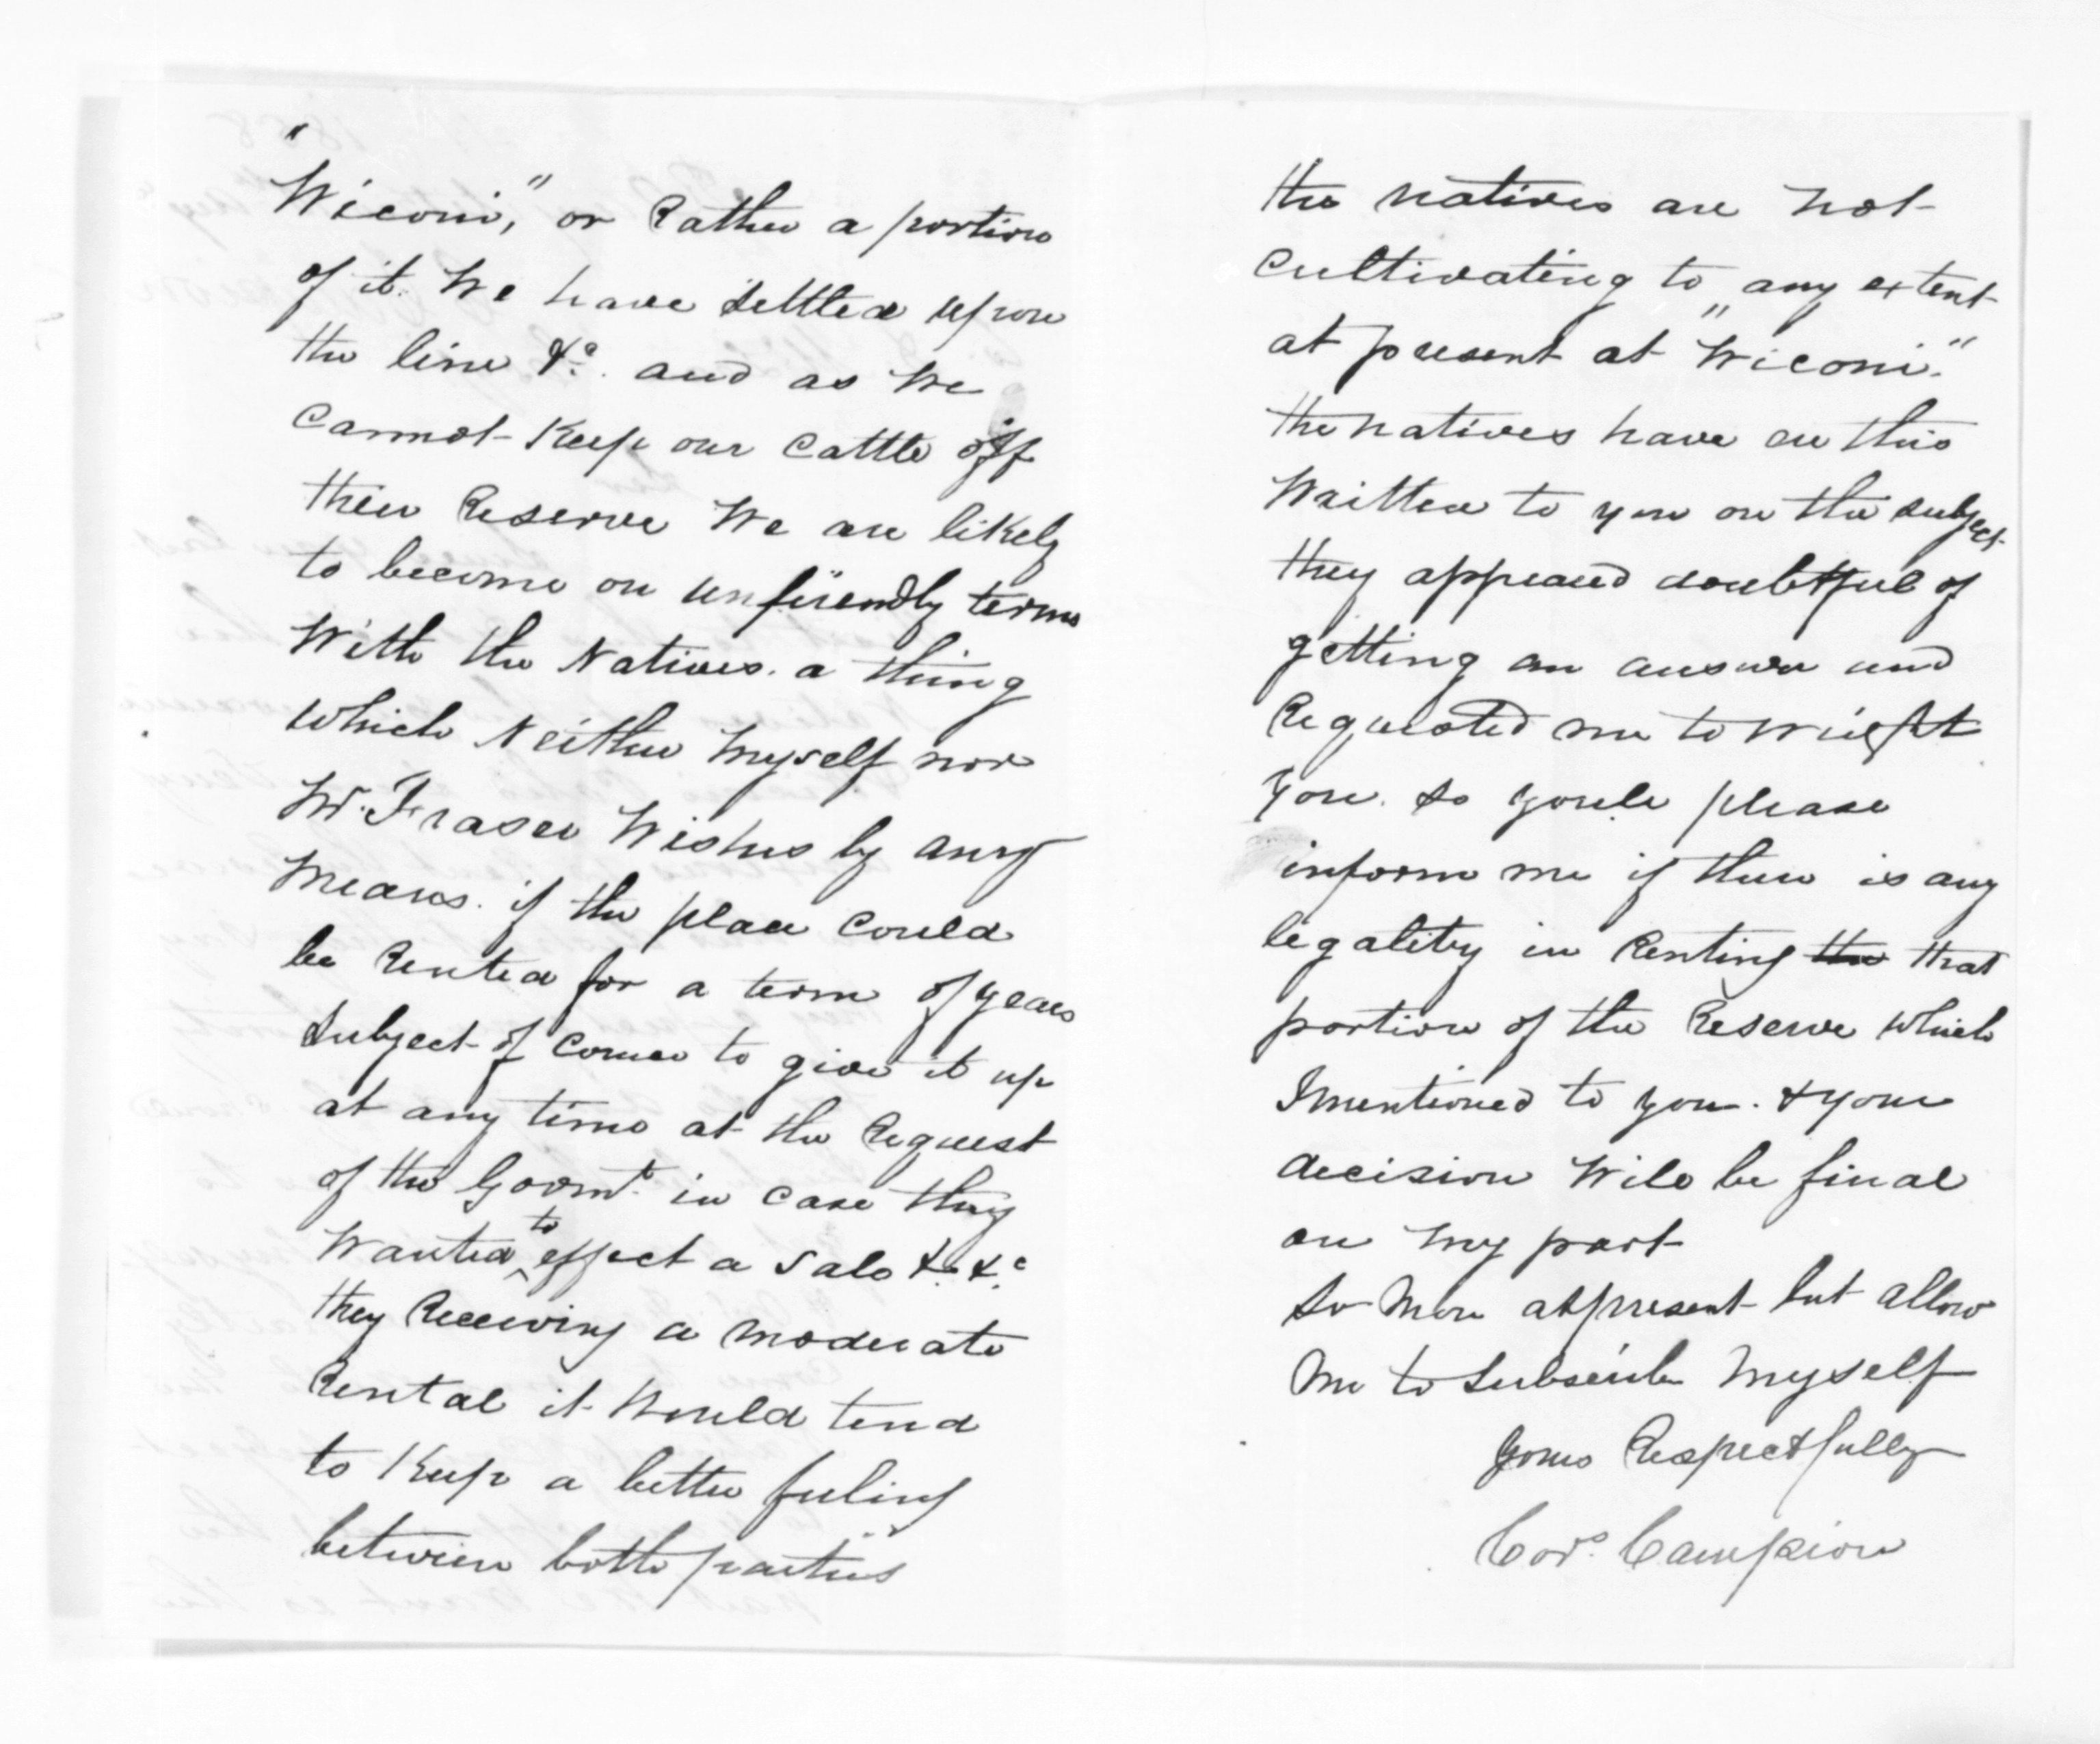 "Wiconi," or Rather a portion
of it. We have settled upon
the line &c. and as We
Cannot Keep our Cattle off
their Reserve We are likely
to become on unfriendly terms
With the Natives. a thing
which Neither Myself nor
Mr. Fraser Wishes by any
Means. if the place Could
be Rented for a term of years
Subject of Corse to give it up
at any time at the Request
of the Govmt. in case they
Wanted to effect a Sale &. &c.
they Receiving a moderate
Rental it Would tend
to Keep a better feeling
between both parties
the natives are not
Cultivating to any extent
at present at "Wiconi."
the natives have ere this
Written to you on the subject
they appeared doubtful of
getting an answer and
Requested me to Wright
you. So youle please
inform me if there is any
legality in Renting the that
portion of the Reserve which
I mentioned to you. & your
decision Will be final
on My part
No More at present but allow
Me to Subscribe Myself
Yours Respectfully
Cors. Campion